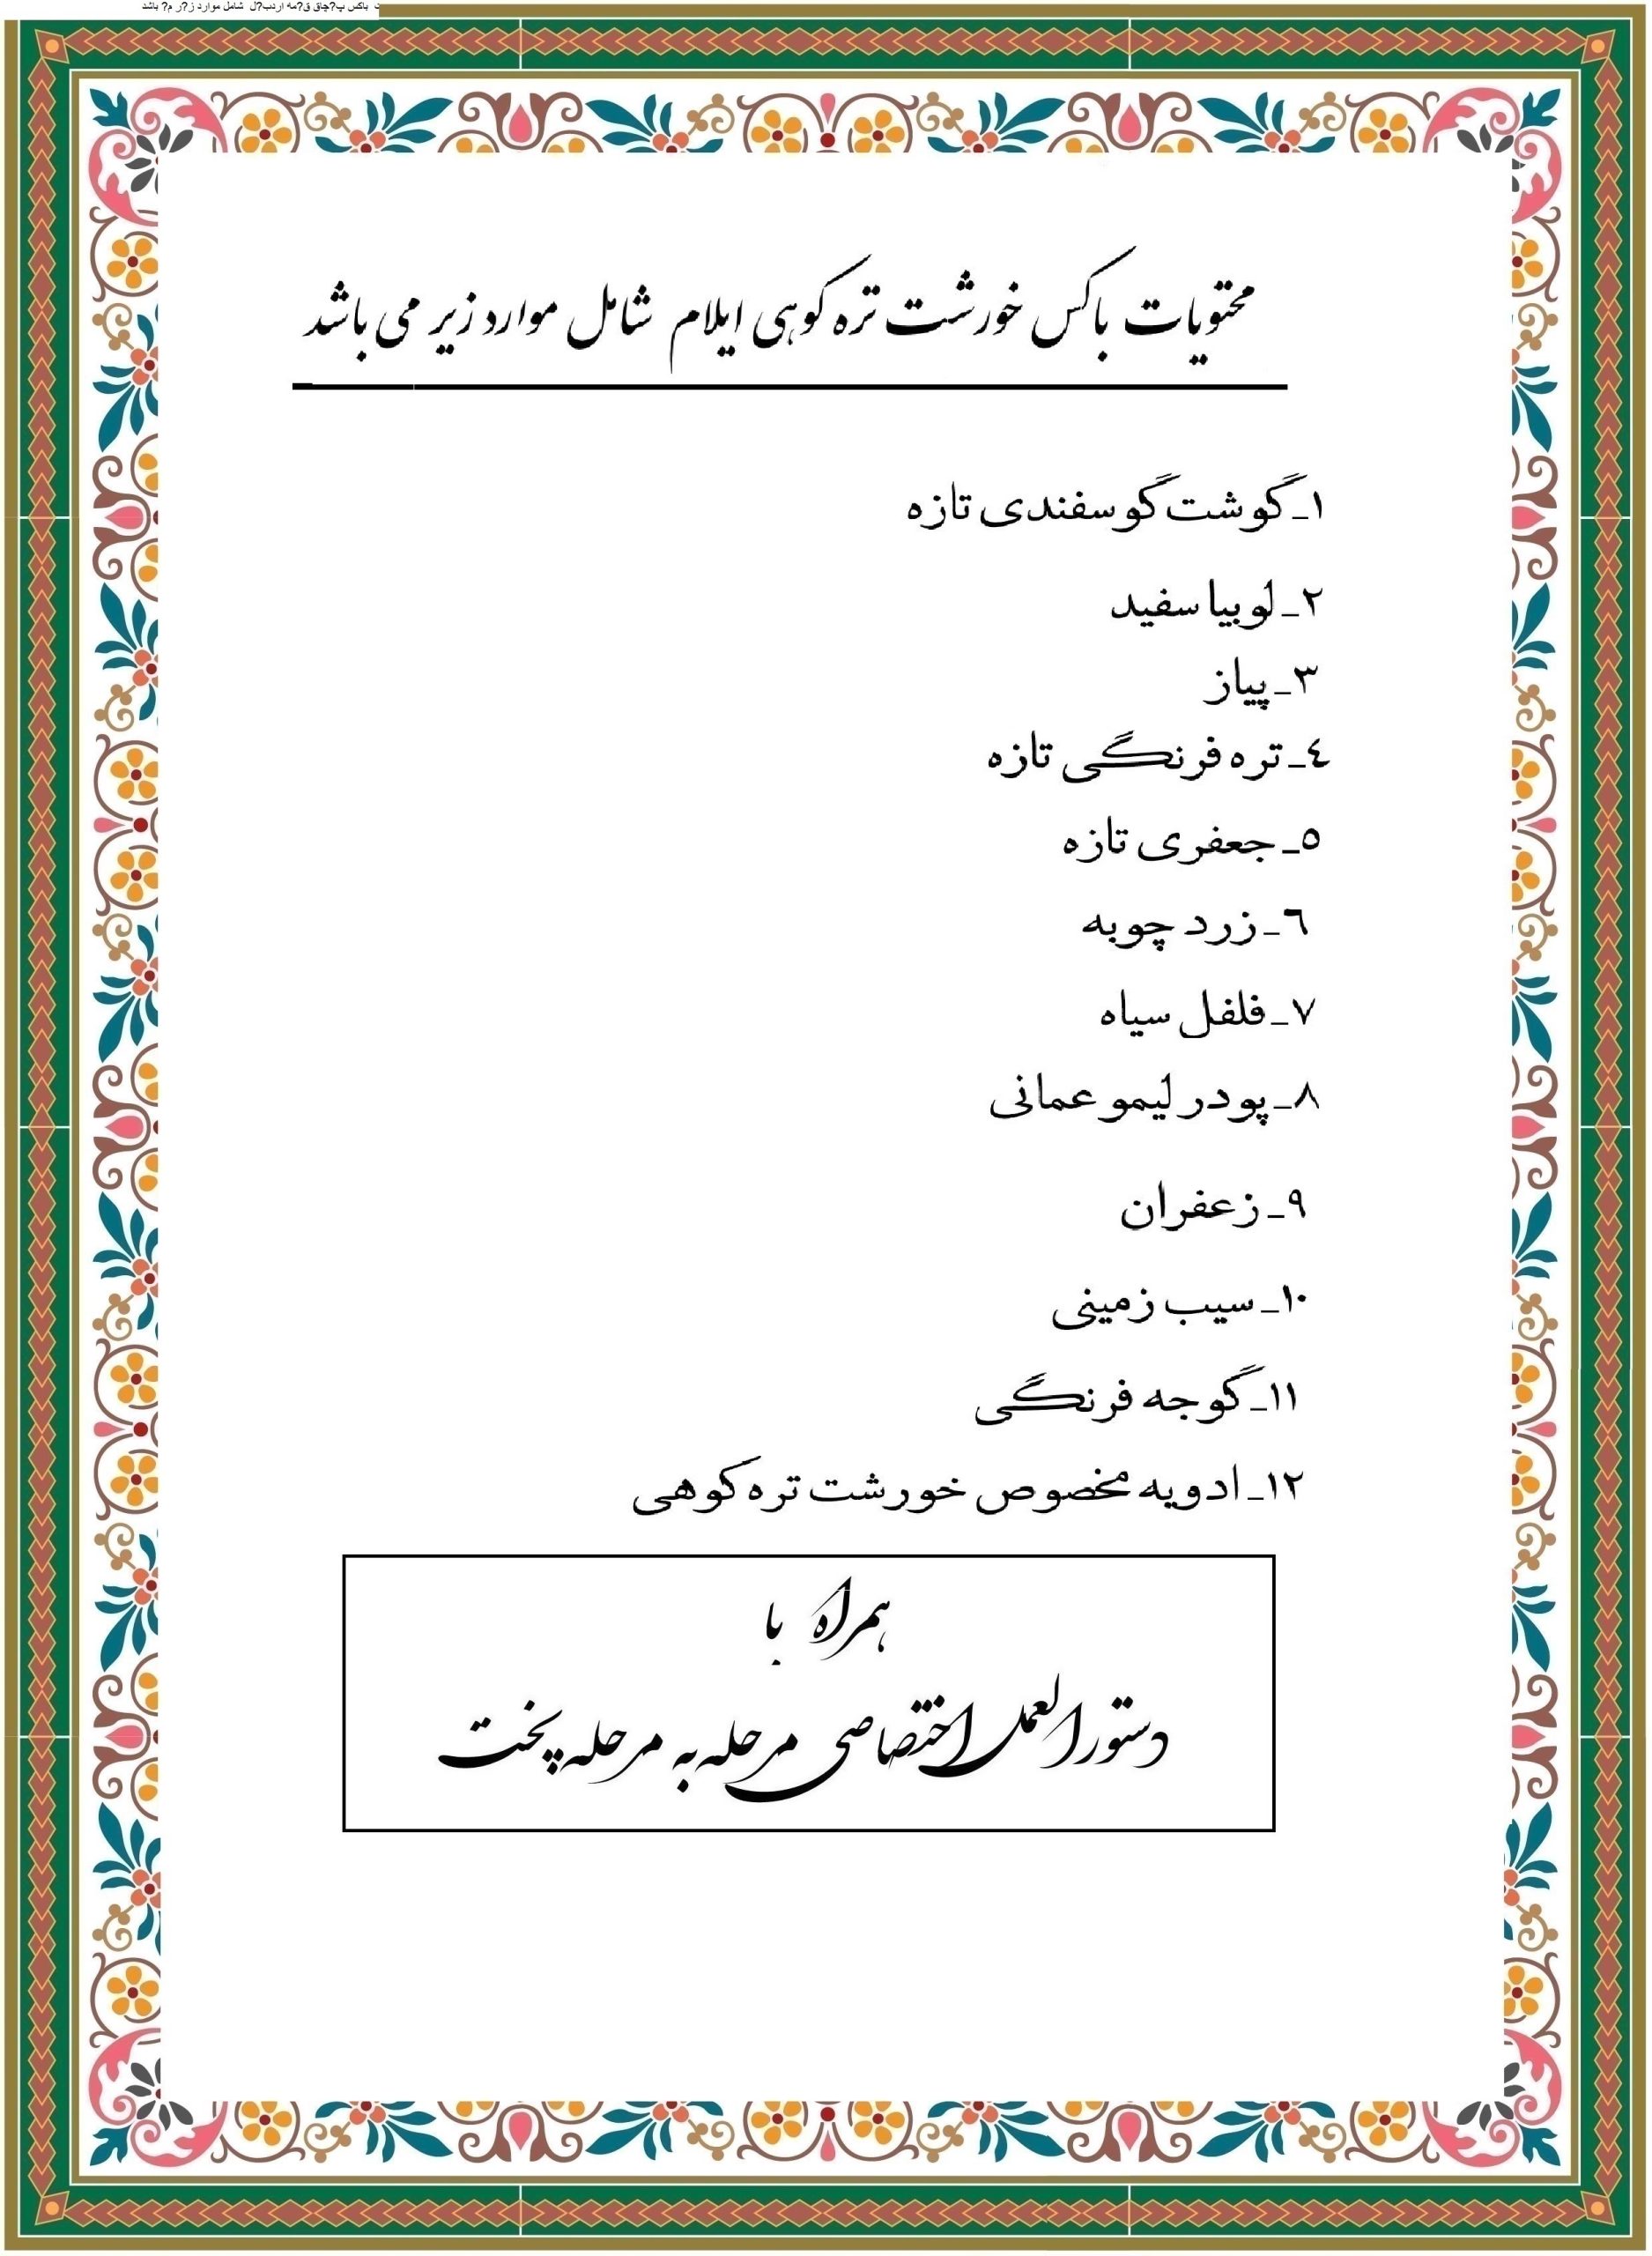 باکس پ?چاق ق?مه اردب?ل شامل موارد ز?ر م? باشد
محتویات باکس خورشت تره کوهی ایلام شامل موارد زیر می باشد
۱_گوشت گوسفندی تازه
۲_ لوبیا سفید
۳_پیاز
٤_تره فرنگی تازه
٥_ جعفری تازه
٦_زرد چوبه
۷_فلفل سیاه
۸_پودر لیمو عمانی
۹_ زعفران
۱۰_ سیب زمینی
۱۱_گوجه فرنگی
۱۲_ ادویه مخصوص خورشت تره کوهی
همراه با
دستورالعمل اختصاصی مرحله به مرحله پخت